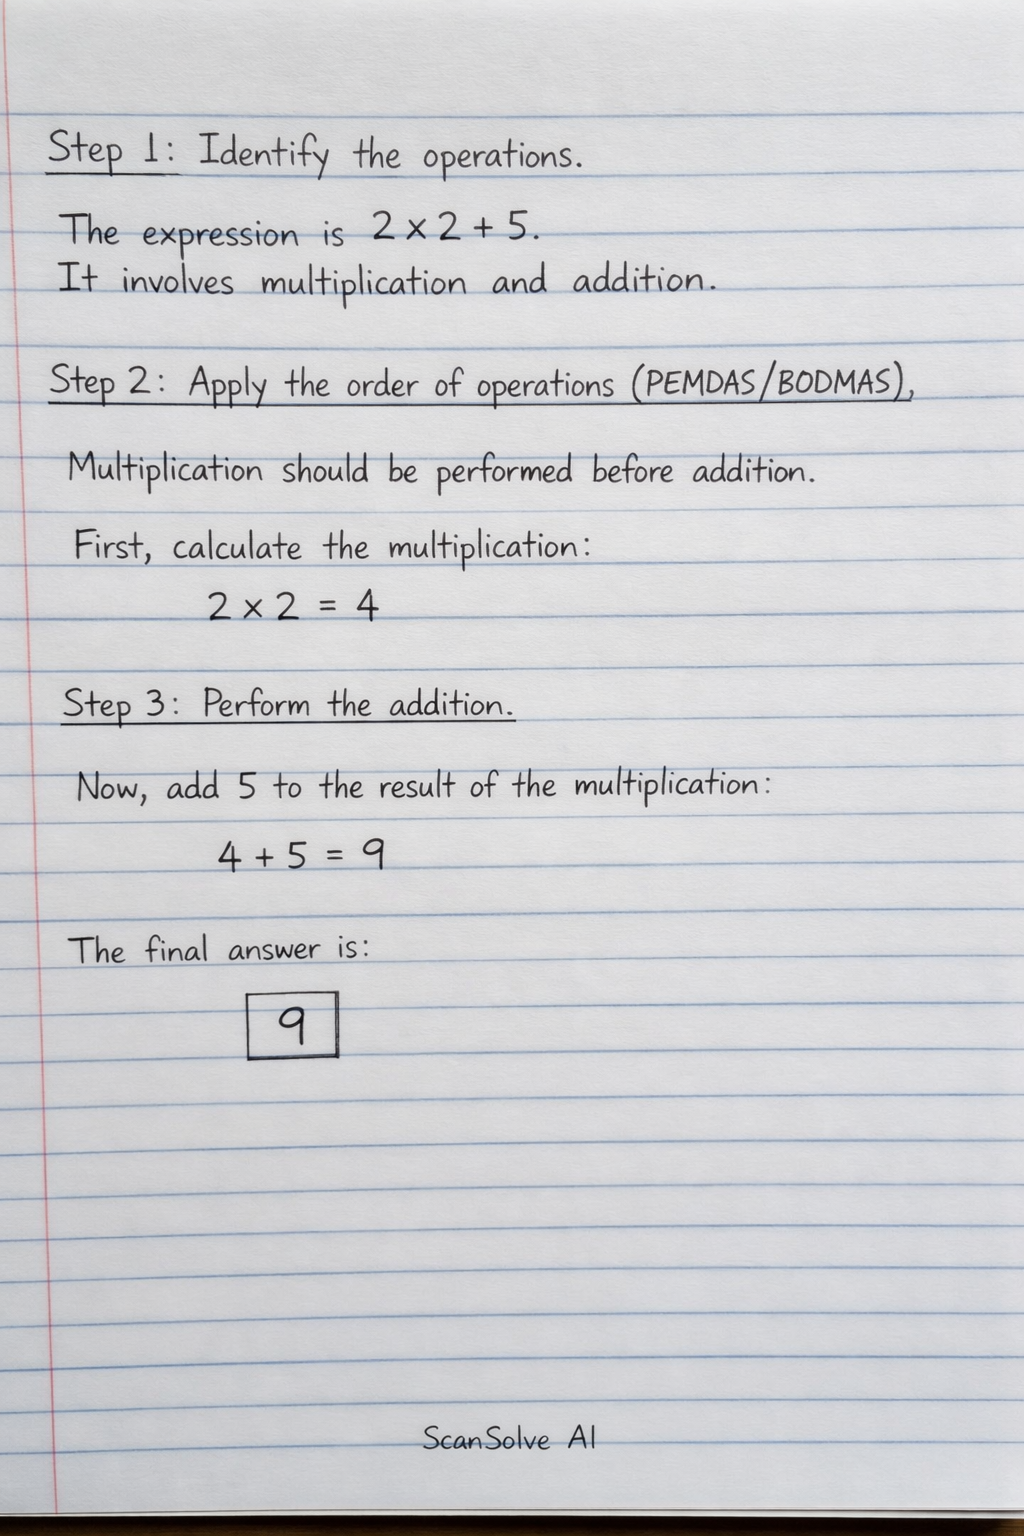 Step 1: Identify the operations.
The expression is 2 × 2 + 5.
It involves multiplication and addition.
Step 2: Apply the order of operations (PEMDAS/BODMAS),
Multiplication should be performed before addition.
First, calculate the multiplication:
2 × 2 = 4
Step 3: Perform the addition.
Now, add 5 to the result of the multiplication:
4 + 5 = 9
The final answer is:
9
ScanSolve AI